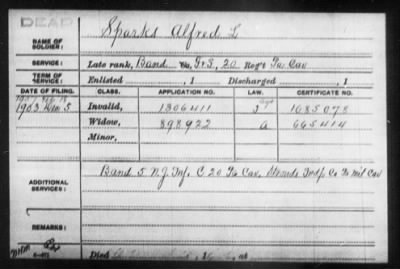 DEAD
NAME OF SOLDIER: Sparks Alfred L
SERVICE: Late rank, Band Co. G&S, 20 Reg't Pa Cav
TERM OF SERVICE: Enlisted , 1 Discharged , 1
DATE OF FILING. CLASS. APPLICATION NO. LAW. CERTIFICATE NO.
1903 Dec 5 Invalid, 1306411 1085078
Widow, 898922 a 665414
Minor,
ADDITIONAL SERVICES: Band 5 N.J. Inf. C 20 Pa Cav. Indp Co Pa Mil Cav
REMARKS:
Died